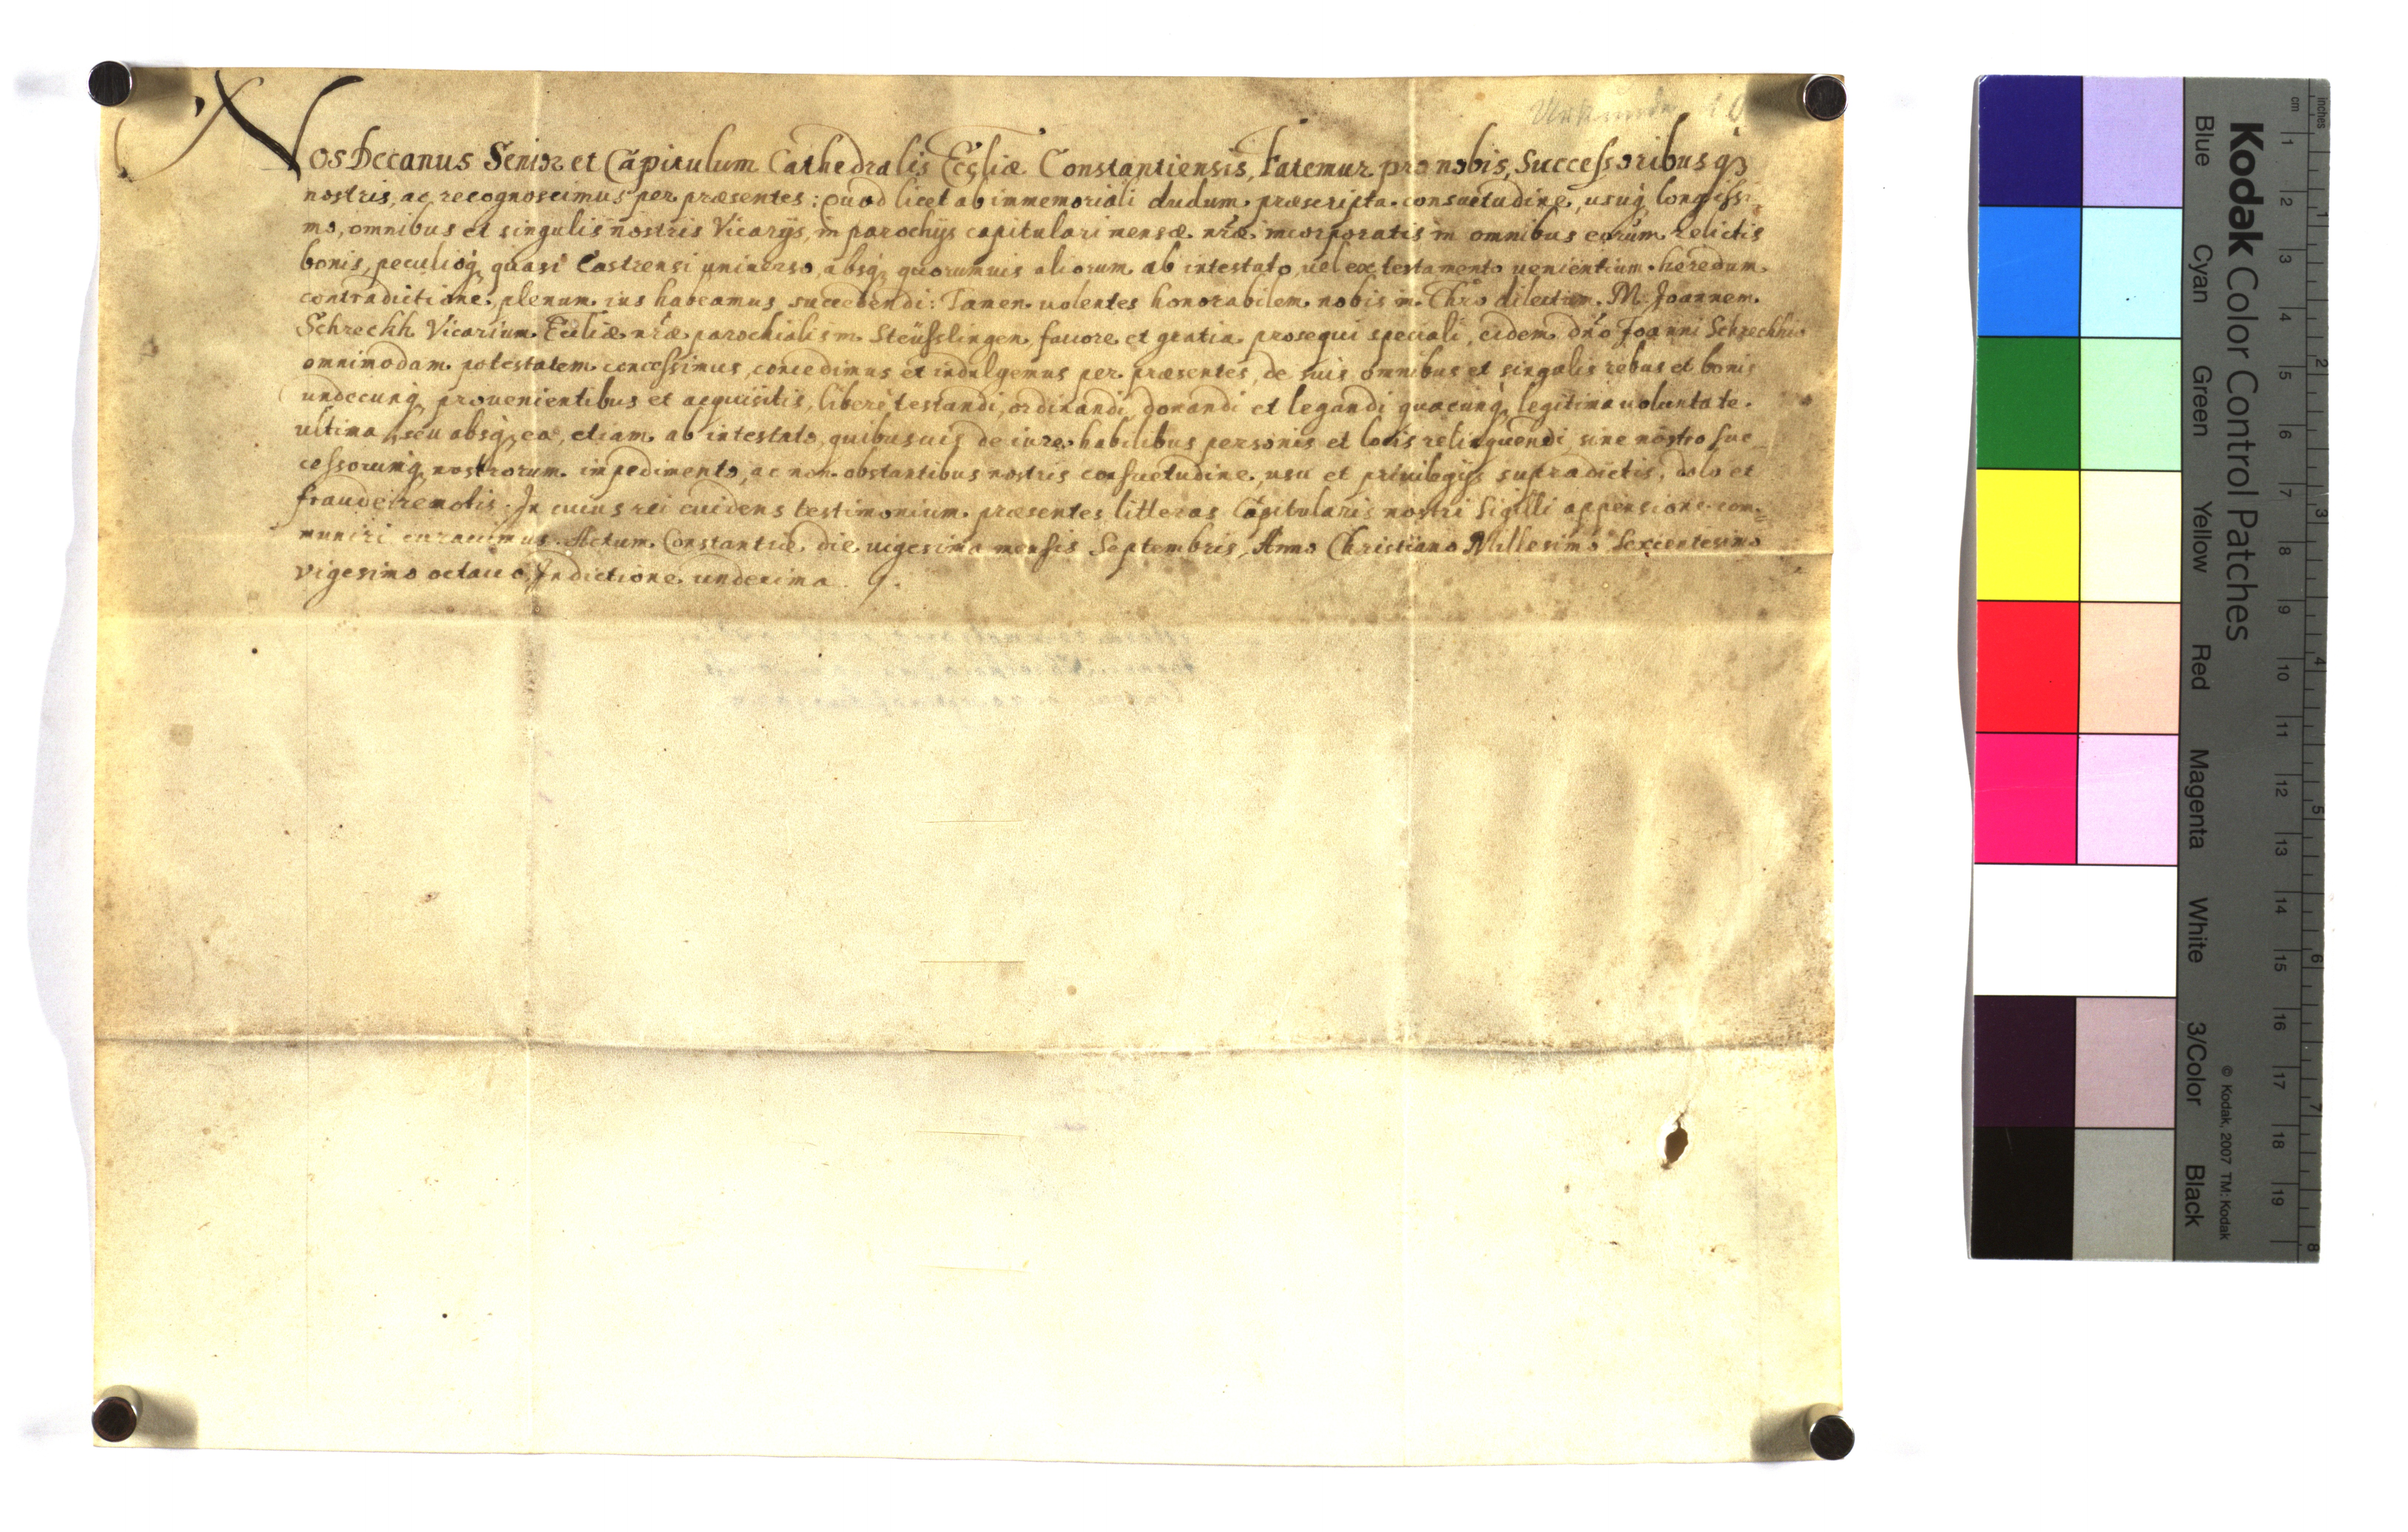 Urkunde 10
Nos Decanus Senior et Capitulum Cathedralis Eccliæ Constantiensis, Fatemur pro nobis, Successoribusq;
nostris, ac recognoscimus per præsentes: Quod licet ab immemoriali dudum præscripta consuetudine, usuq; longissi-
mo, omnibus et singulis nostris Vicarijs, in parochijs capitulari mensæ nr̃æ incorporatis in omnibus eorum relictis
bonis, peculioq; quasi Castrensi universo, absq; quorumuis aliorum ab intestato, uel ex testamento uenientium heredum
contradictione plenum ius habeamus succedendi: Tamen uolentes honorabilem nobis in Chr̃o dilectum M. Joannem
Schrechh Vicarium Eccliæ nr̃æ parochialis in Steüsslingen fauore et gratia prosequi speciali, eidem dn̄o Joanni Schrechhio
omnimodam potestatem concessimus, concedimus et indulgemus per præsentes, de suis omnibus et singulis rebus et bonis
undecunq; prouenientibus et acquisitis, liberè testandi, ordinandi, donandi et legandi quacunq; legitima uoluntate
ultima, seu absq; ea, etiam ab intestato, quibusuis de iure habilibus personis et locis relinquendi, sine nostro suc-
cessorumq; nostrorum impedimento, ac non obstantibus nostris consuetudine, usu et priuilegijs supradictis, dolo et
fraude remotis. In cuius rei euidens testimonium præsentes litteras Capitularis nostri Sigilli appensione com-
muniri curauimus. Actum Constantiæ die uigesima mensis Septembris, Anno Christiano Millesimo Sexcentesimo
vigesimo octauo, Indictione undecima.
Kodak Color Control Patches
Blue Cyan Green Yellow Red Magenta White 3/Color Black
© Kodak, 2007 TM: Kodak
cm 1 2 3 4 5 6 7 8 9 10 11 12 13 14 15 16 17 18 19
Inches 1 2 3 4 5 6 7 8